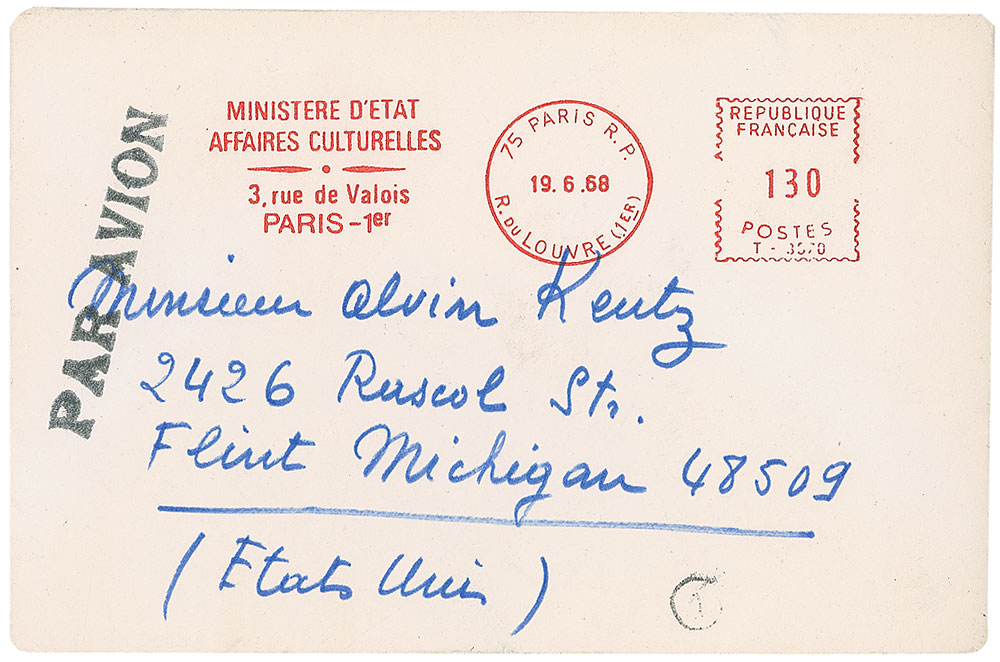 MINISTERE D'ETAT
AFFAIRES CULTURELLES
3, rue de Valois
PARIS-1er
75 PARIS R.P.
19.6.68
R. DU LOUVRE (1ER)
REPUBLIQUE
FRANÇAISE
130
POSTES
T-
PAR AVION
Monsieur Alvin Kentz
2426 Rascol Str.
Flint Michigan 48509
(Etats Unis)
1